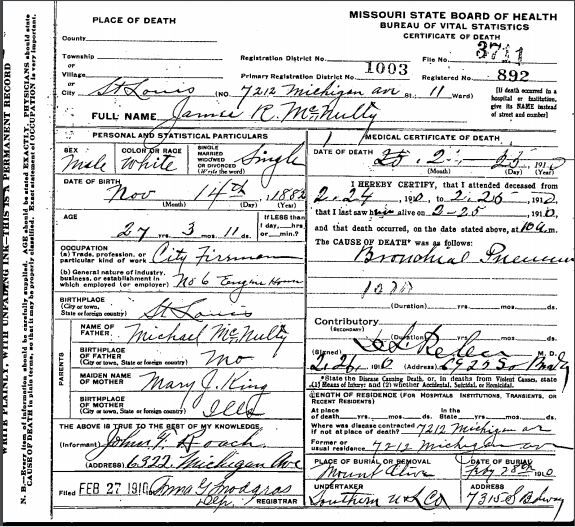 MISSOURI STATE BOARD OF HEALTH
BUREAU OF VITAL STATISTICS
CERTIFICATE OF DEATH
PLACE OF DEATH
County
Township
or
Village
or
City St Louis (NO. 7212 Michigan av St., 11 Ward)
Registration District No. File No. 3711
Primary Registration District No. 1003 Registered No. 892
[If death occurred in a hospital or institution, give its NAME instead of street and number]
FULL NAME James R. McNulty
PERSONAL AND STATISTICAL PARTICULARS
SEX Male
COLOR OR RACE White
SINGLE MARRIED WIDOWED OR DIVORCED (Write the word) Single
DATE OF BIRTH Nov 14th, 1882
(Month) (Day) (Year)
AGE 27 yrs. 3 mos. 11 ds.
If LESS than 1 day, hrs or min.?
OCCUPATION
(a) Trade, profession, or particular kind of work City Fireman
(b) General nature of industry, business, or establishment in which employed (or employer) No 6 Engine House
BIRTHPLACE
(City or town, State or foreign country) St Louis
PARENTS
NAME OF FATHER Michael McNulty
BIRTHPLACE OF FATHER (City or town, State or foreign country) Mo
MAIDEN NAME OF MOTHER Mary J. King
BIRTHPLACE OF MOTHER (City or town, State or foreign country) Ills
THE ABOVE IS TRUE TO THE BEST OF MY KNOWLEDGE
(Informant) Roach
(ADDRESS) 6322 Michigan Ave
Filed FEB 27 1910
REGISTRAR
MEDICAL CERTIFICATE OF DEATH
DATE OF DEATH 25, 1910
(Month) (Day) (Year)
I HEREBY CERTIFY, that I attended deceased from
2-24, 1910, to 2-25, 1910,
that I last saw him alive on 2-25, 1910,
and that death occurred, on the date stated above, at 10 a.m.
The CAUSE OF DEATH* was as follows:
Bronchial
(Duration) yrs. mos. ds.
Contributory
(SECONDARY)
(Duration) yrs. mos. ds.
(Signed) M. D.
2-26, 1910 (Address) 6922 So
*State the Disease Causing Death, or, in deaths from Violent Causes, state (1) Means of Injury; and (2) whether Accidental, Suicidal, or Homicidal.
LENGTH OF RESIDENCE (For Hospitals, Institutions, Transients, or Recent Residents)
At place of death yrs. mos. ds. In the State yrs. mos. ds.
Where was disease contracted if not at place of death? 7212 Michigan av
Former or usual residence 7212 Michigan av
PLACE OF BURIAL OR REMOVAL Mount Olive
DATE OF BURIAL Feby 28th 1910
UNDERTAKER Southern
ADDRESS 7315 S Bdway
WRITE PLAINLY, WITH UNFADING INK—THIS IS A PERMANENT RECORD
N. B.—Every item of information should be carefully supplied. AGE should be stated EXACTLY. PHYSICIANS should state
CAUSE OF DEATH in plain terms, so that it may be properly classified. Exact statement of OCCUPATION is very important.